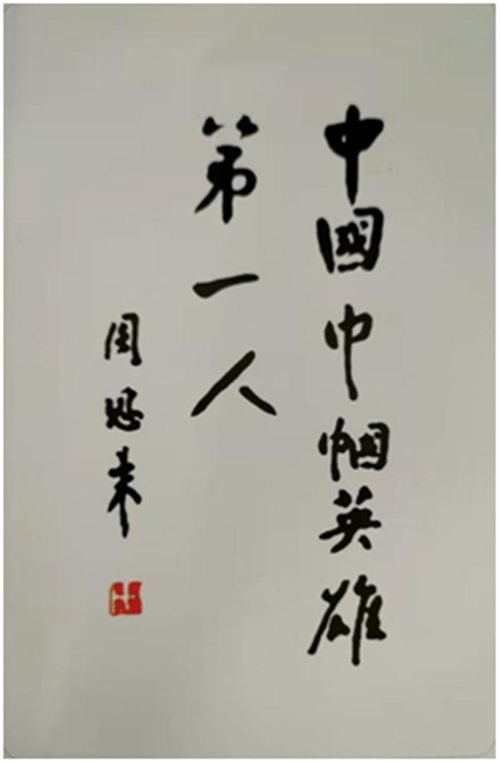 中國巾幗英雄
第一人
周恩来